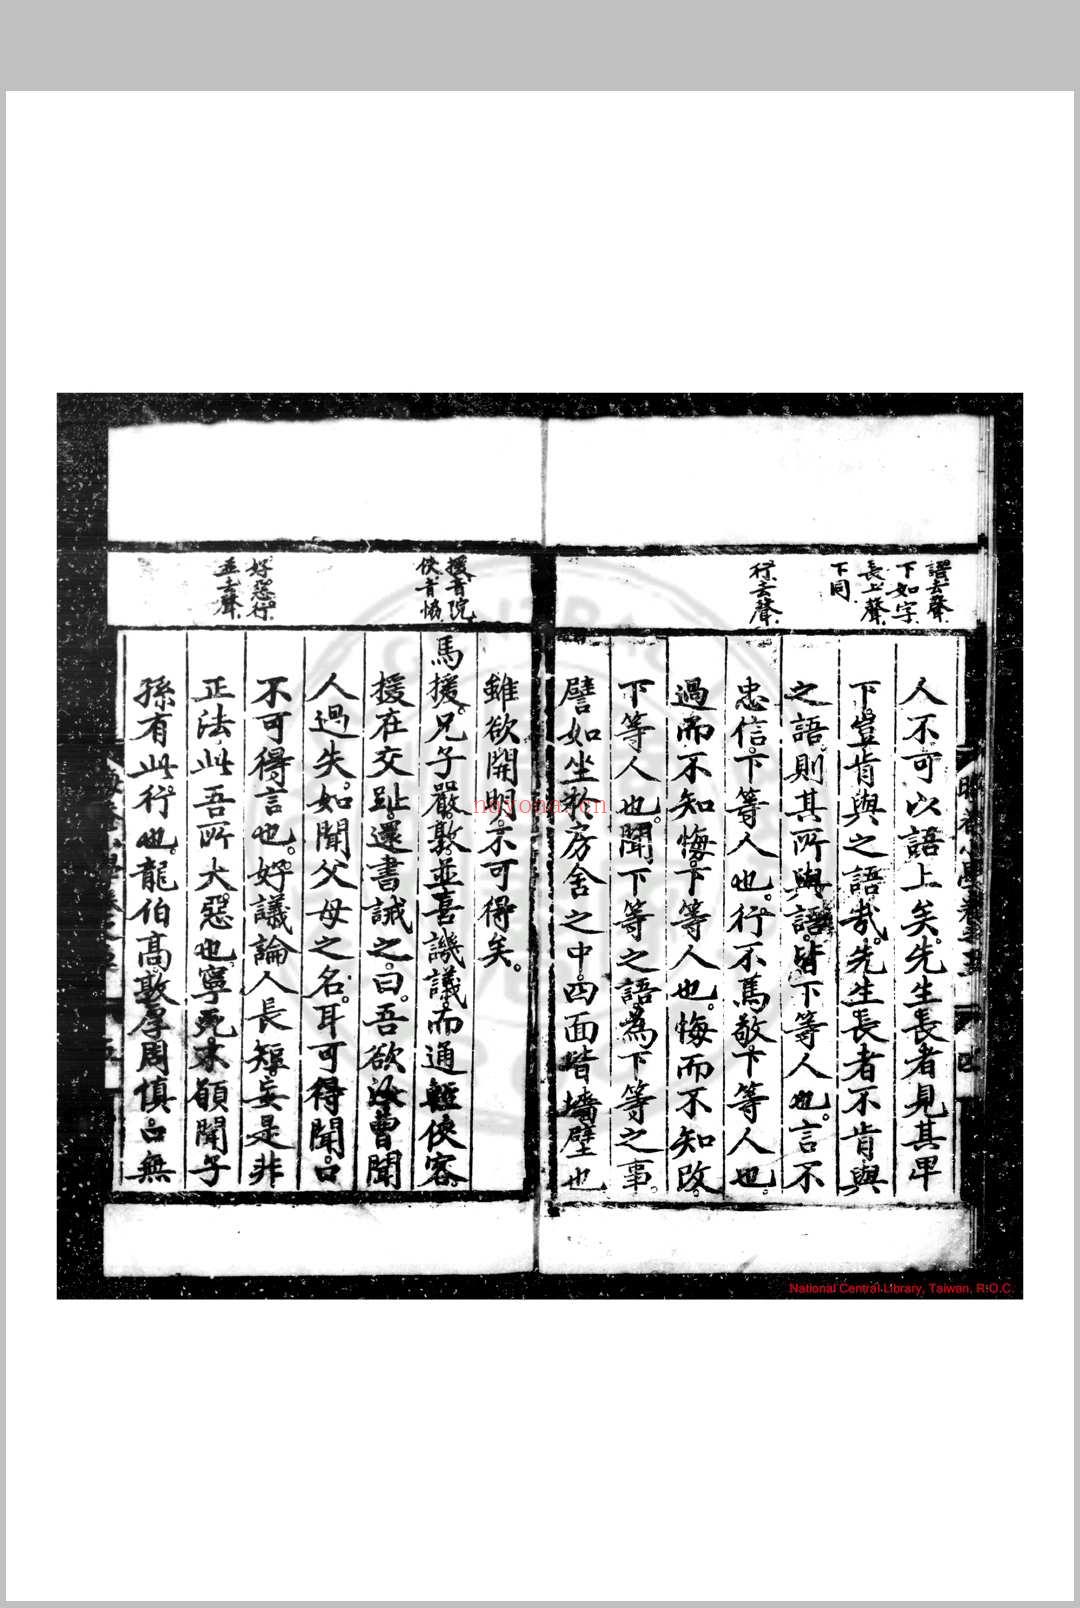 語去聲
下如字
長上聲
下同
行去聲
人不可以語上矣先生長者見其卑
下豈肯與之語哉先生長者不肯與
之語則其所與語皆下等人也言不
忠信下等人也行不篤敬下等人也
過而不知悔下等人也悔而不知改
下等人也聞下等之語為下等之事
譬如坐於房舍之中四面皆墻壁也
援音院
俠音協
好惡行
並去聲
雖欲開明不可得矣
馬援兄子嚴敦並喜譏議而通輕俠客
援在交趾還書誡之曰吾欲汝曹聞
人過失如聞父母之名耳可得聞口
不可得言也好議論人長短妄是非
正法此吾所大惡也寧死不願聞子
孫有此行也龍伯高敦厚周慎口無
nayona.cn
National Central Library, Taiwan, R.O.C.